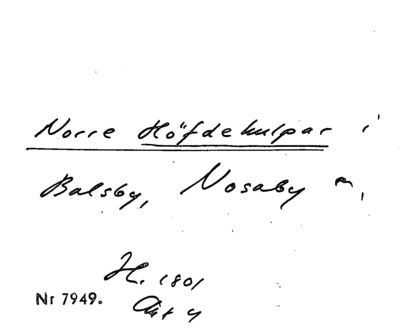 Norre Höfdekulpar i
Balsby, Nosaby m,
H. 1801
Nr 7949. Akt 4